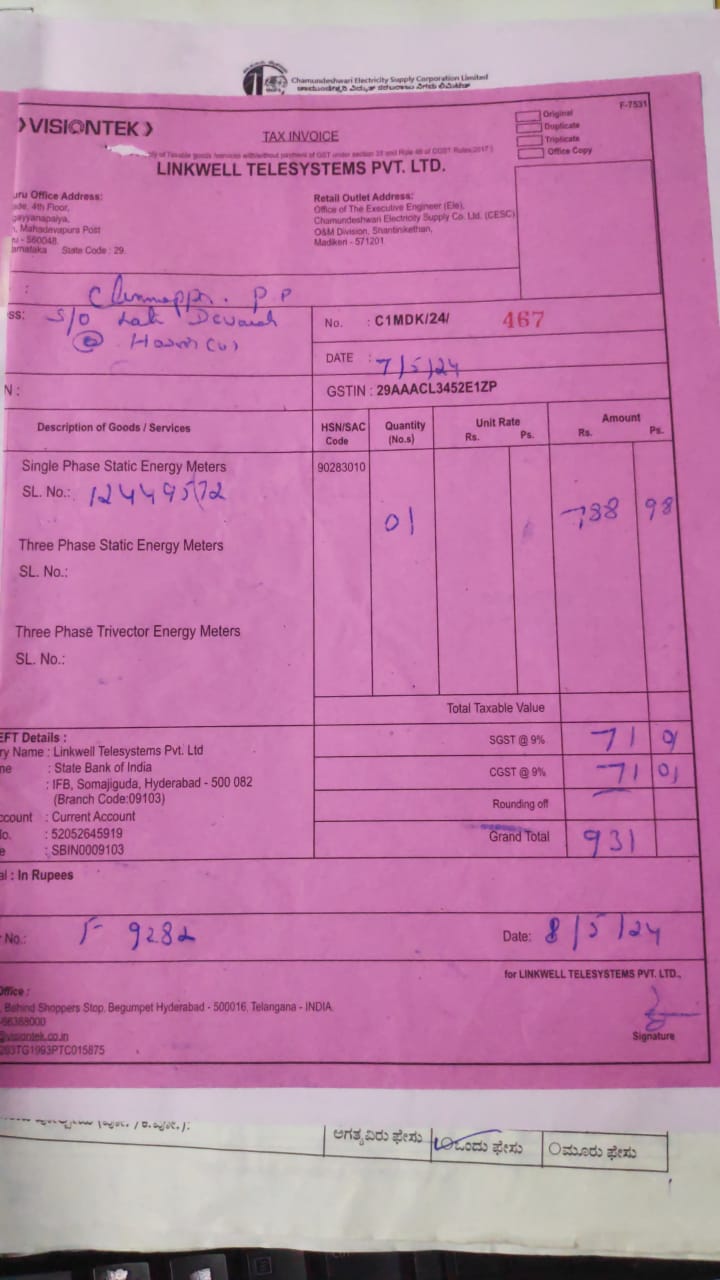 Chamundeshwari Electricity Supply Corporation Limited
ಚಾಮುಂಡೇಶ್ವರಿ ವಿದ್ಯುತ್ ಸರಬರಾಜು ನಿಗಮ ಲಿಮಿಟೆಡ್
F-7531
VISIONTEK
TAX INVOICE
Original
Duplicate
Triplicate
Office Copy
LINKWELL TELESYSTEMS PVT. LTD.
Office Address:
4th Floor,
Mahadevapura Post
- 560048,
State Code : 29.
Retail Outlet Address:
Office of The Executive Engineer (Ele),
Chamundeshwari Electricity Supply Co. Ltd. (CESC)
O&M Division, Shantinkethan,
Madikeri - 571201
: P.P
ss: S/O Late
No. : C1MDK/24/ 467
DATE : 7/5/24
N :
GSTIN : 29AAACL3452E1ZP
Description of Goods / Services
HSN/SAC Code
Quantity (No.s)
Unit Rate Rs. Ps.
Amount Rs. Ps.
Single Phase Static Energy Meters 90283010
SL. No.: 12449572
01 788 98
Three Phase Static Energy Meters
SL. No.:
Three Phase Trivector Energy Meters
SL. No.:
Total Taxable Value
EFT Details :
ry Name : Linkwell Telesystems Pvt. Ltd
SGST @ 9% 71 01
me : State Bank of India
: IFB, Somajiguda, Hyderabad - 500 082
CGST @ 9% 71 01
(Branch Code:09103)
Rounding off
ccount : Current Account
lo. : 52052645919
Grand Total 931
e : SBIN0009103
al : In Rupees
No.: F 9282
Date: 8/5/24
for LINKWELL TELESYSTEMS PVT. LTD.,
Office :
, Behind Shoppers Stop, Begumpet Hyderabad - 500016, Telangana - INDIA.
-66388000
@visiontek.co.in
Signature
263TG1993PTC015875
ಅಗತ್ಯವಿರು ಫೇಸು
ಒಂದು ಫೇಸು
ಮೂರು ಫೇಸು